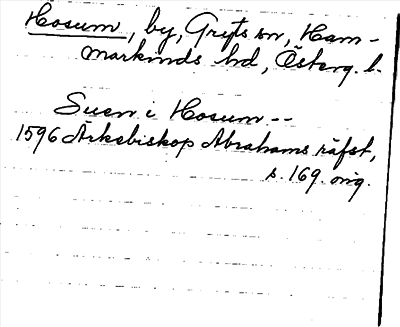 Hosum, by, Gryts sn, Ham-
markinds hd, Österg. l.
Suen i Hosum --
1596 Ärkebiskop Abrahams räfst,
s. 169. orig.